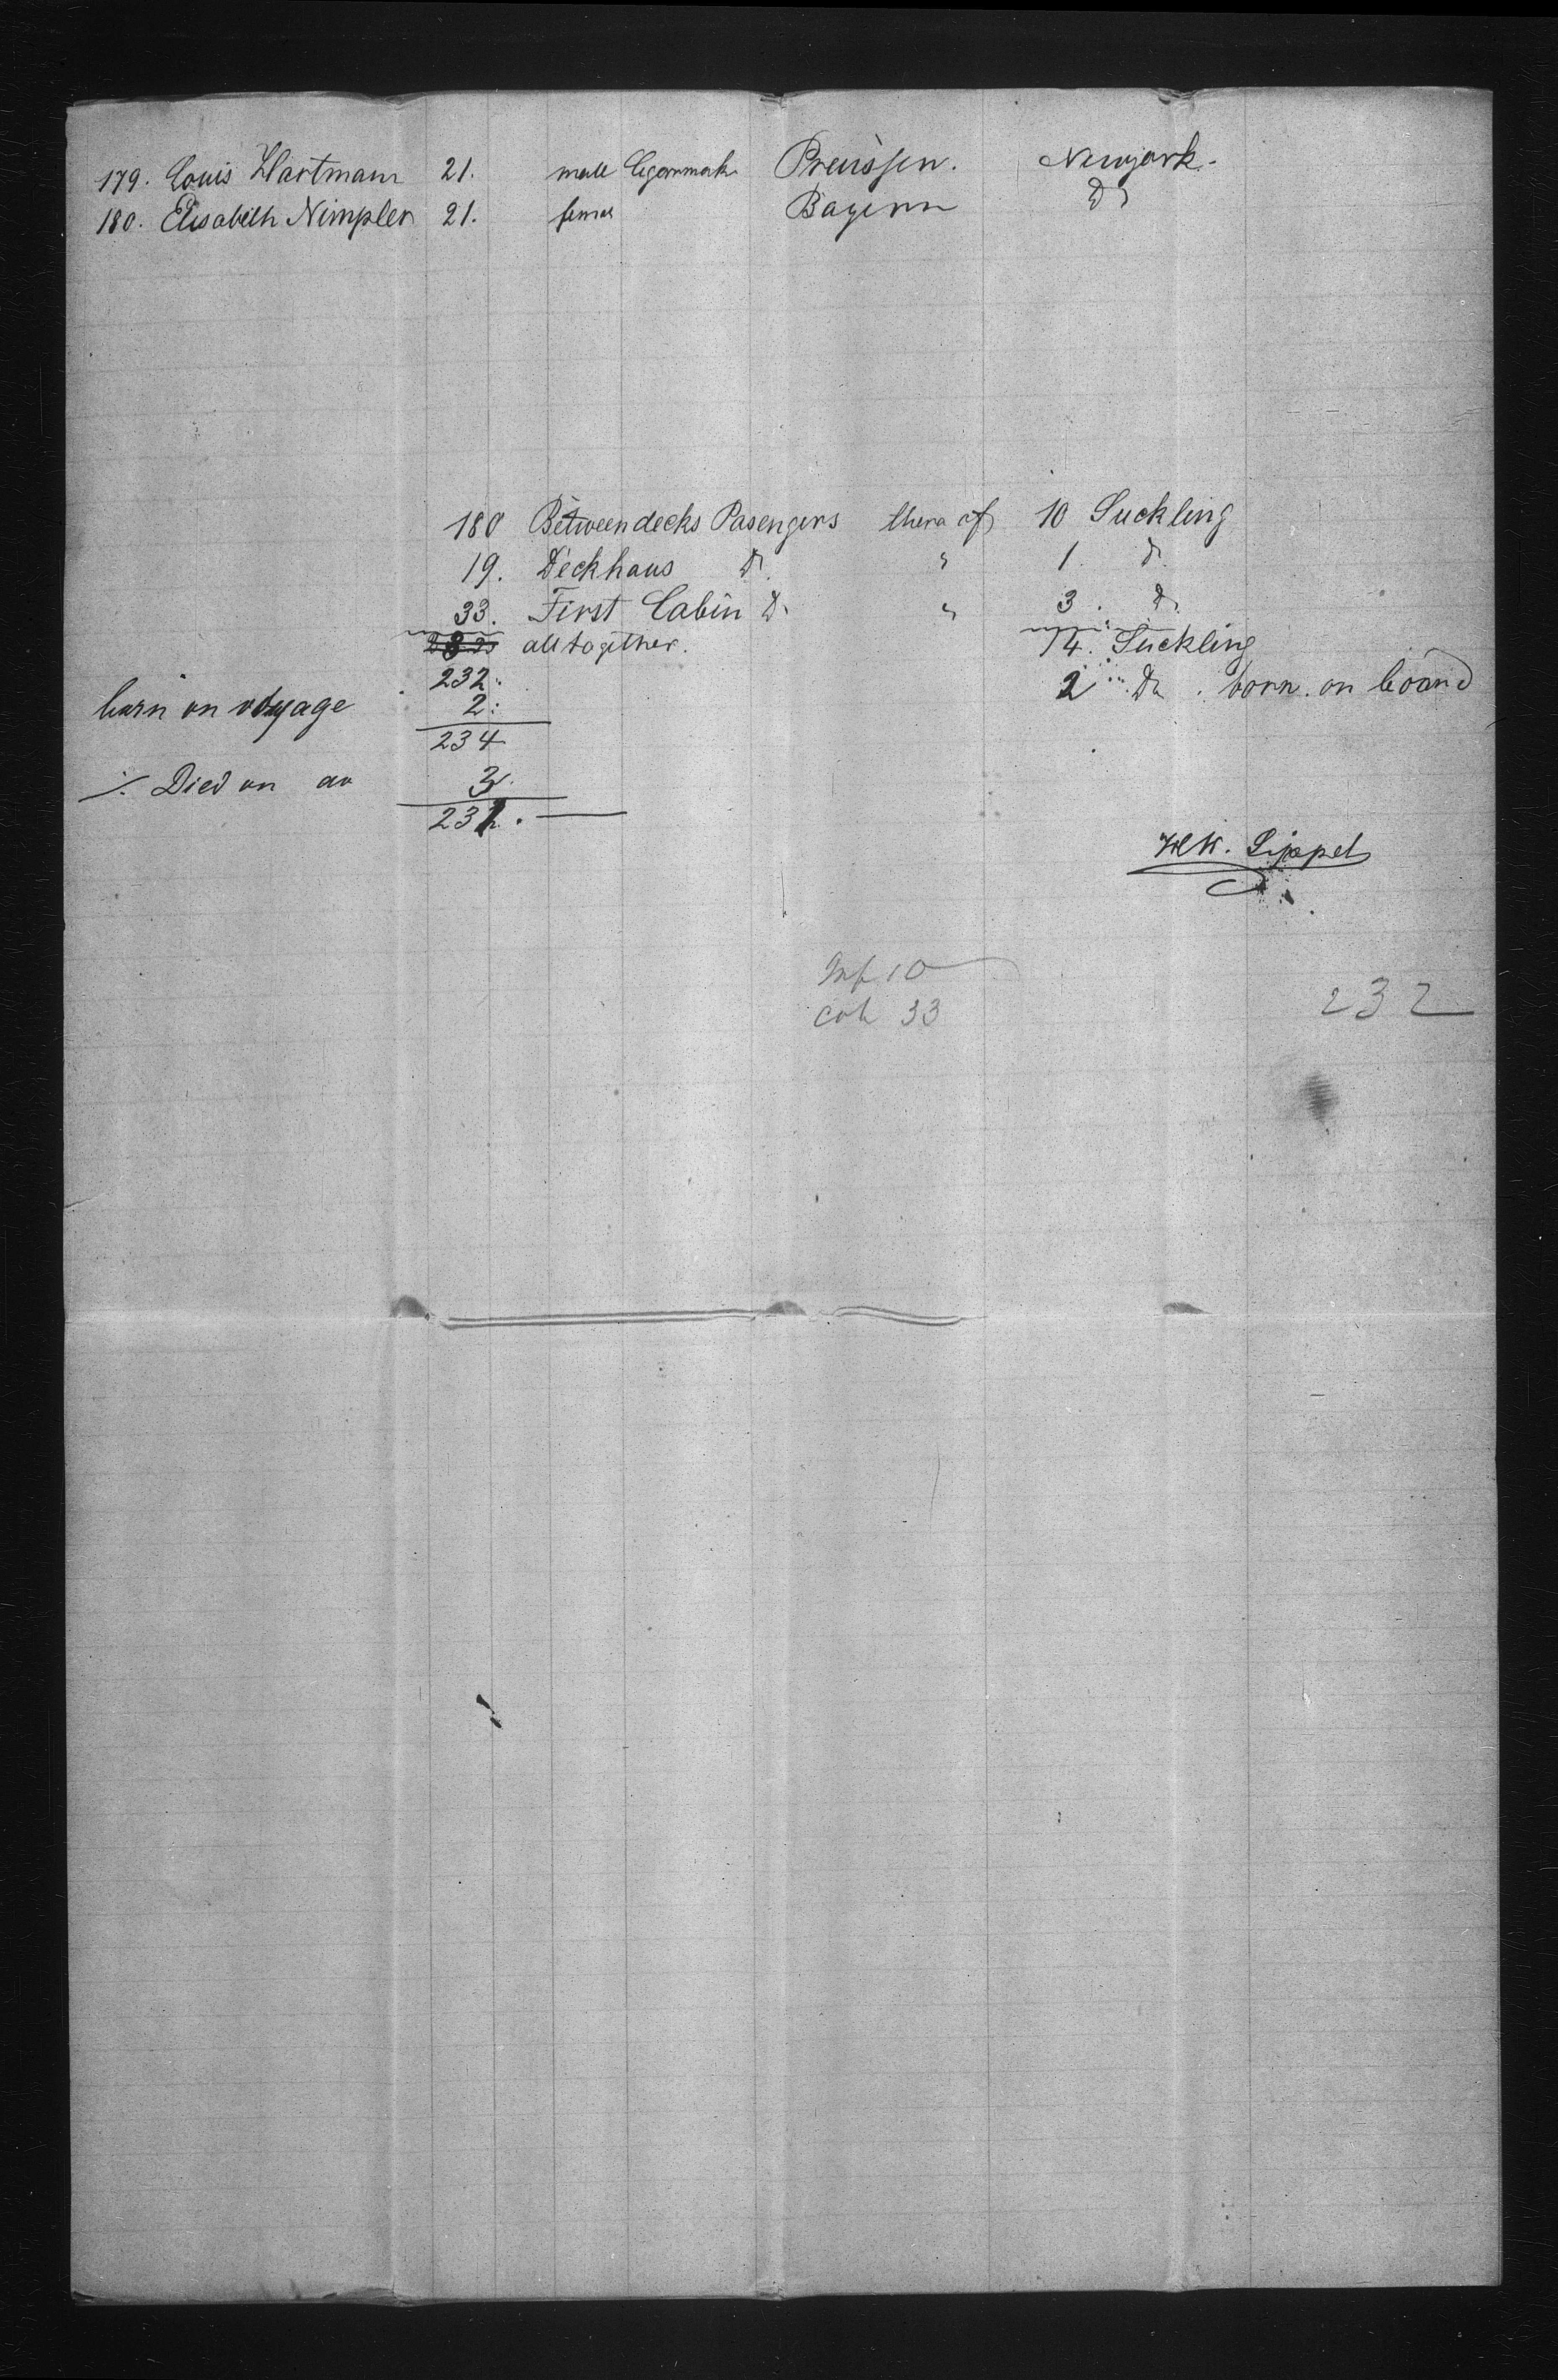 179. Louis Hartmann 21. male Cigarrmak. Preussen. Newjork.
180. Elisabeth Nimpler 21. femal Bayern Do
180 Betweendecks Pasengers thera of 10 Suckling
19. Deckhaus Do " 1. Do
33. First Cabin Do " 3. Do
alltogether. 14. Suckling
232. 2 Do. born on board
born on voyage 2.
234
./. Died on do 3.
231.
Sippel
Inf 10
cab 33
232